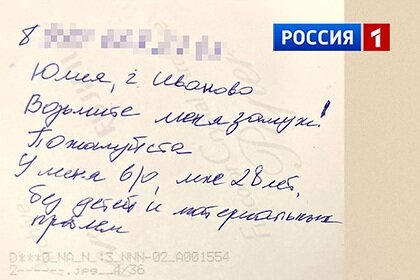 8
РОССИЯ 1
Юлия, г. Иваново
Возьмите меня замуж!
Пожалуйста
У меня в/о, мне 28 лет,
без детей и материальных
проблем
D***0_NA_N_:3_NNN-02_A001554
2------.jpg__4/36